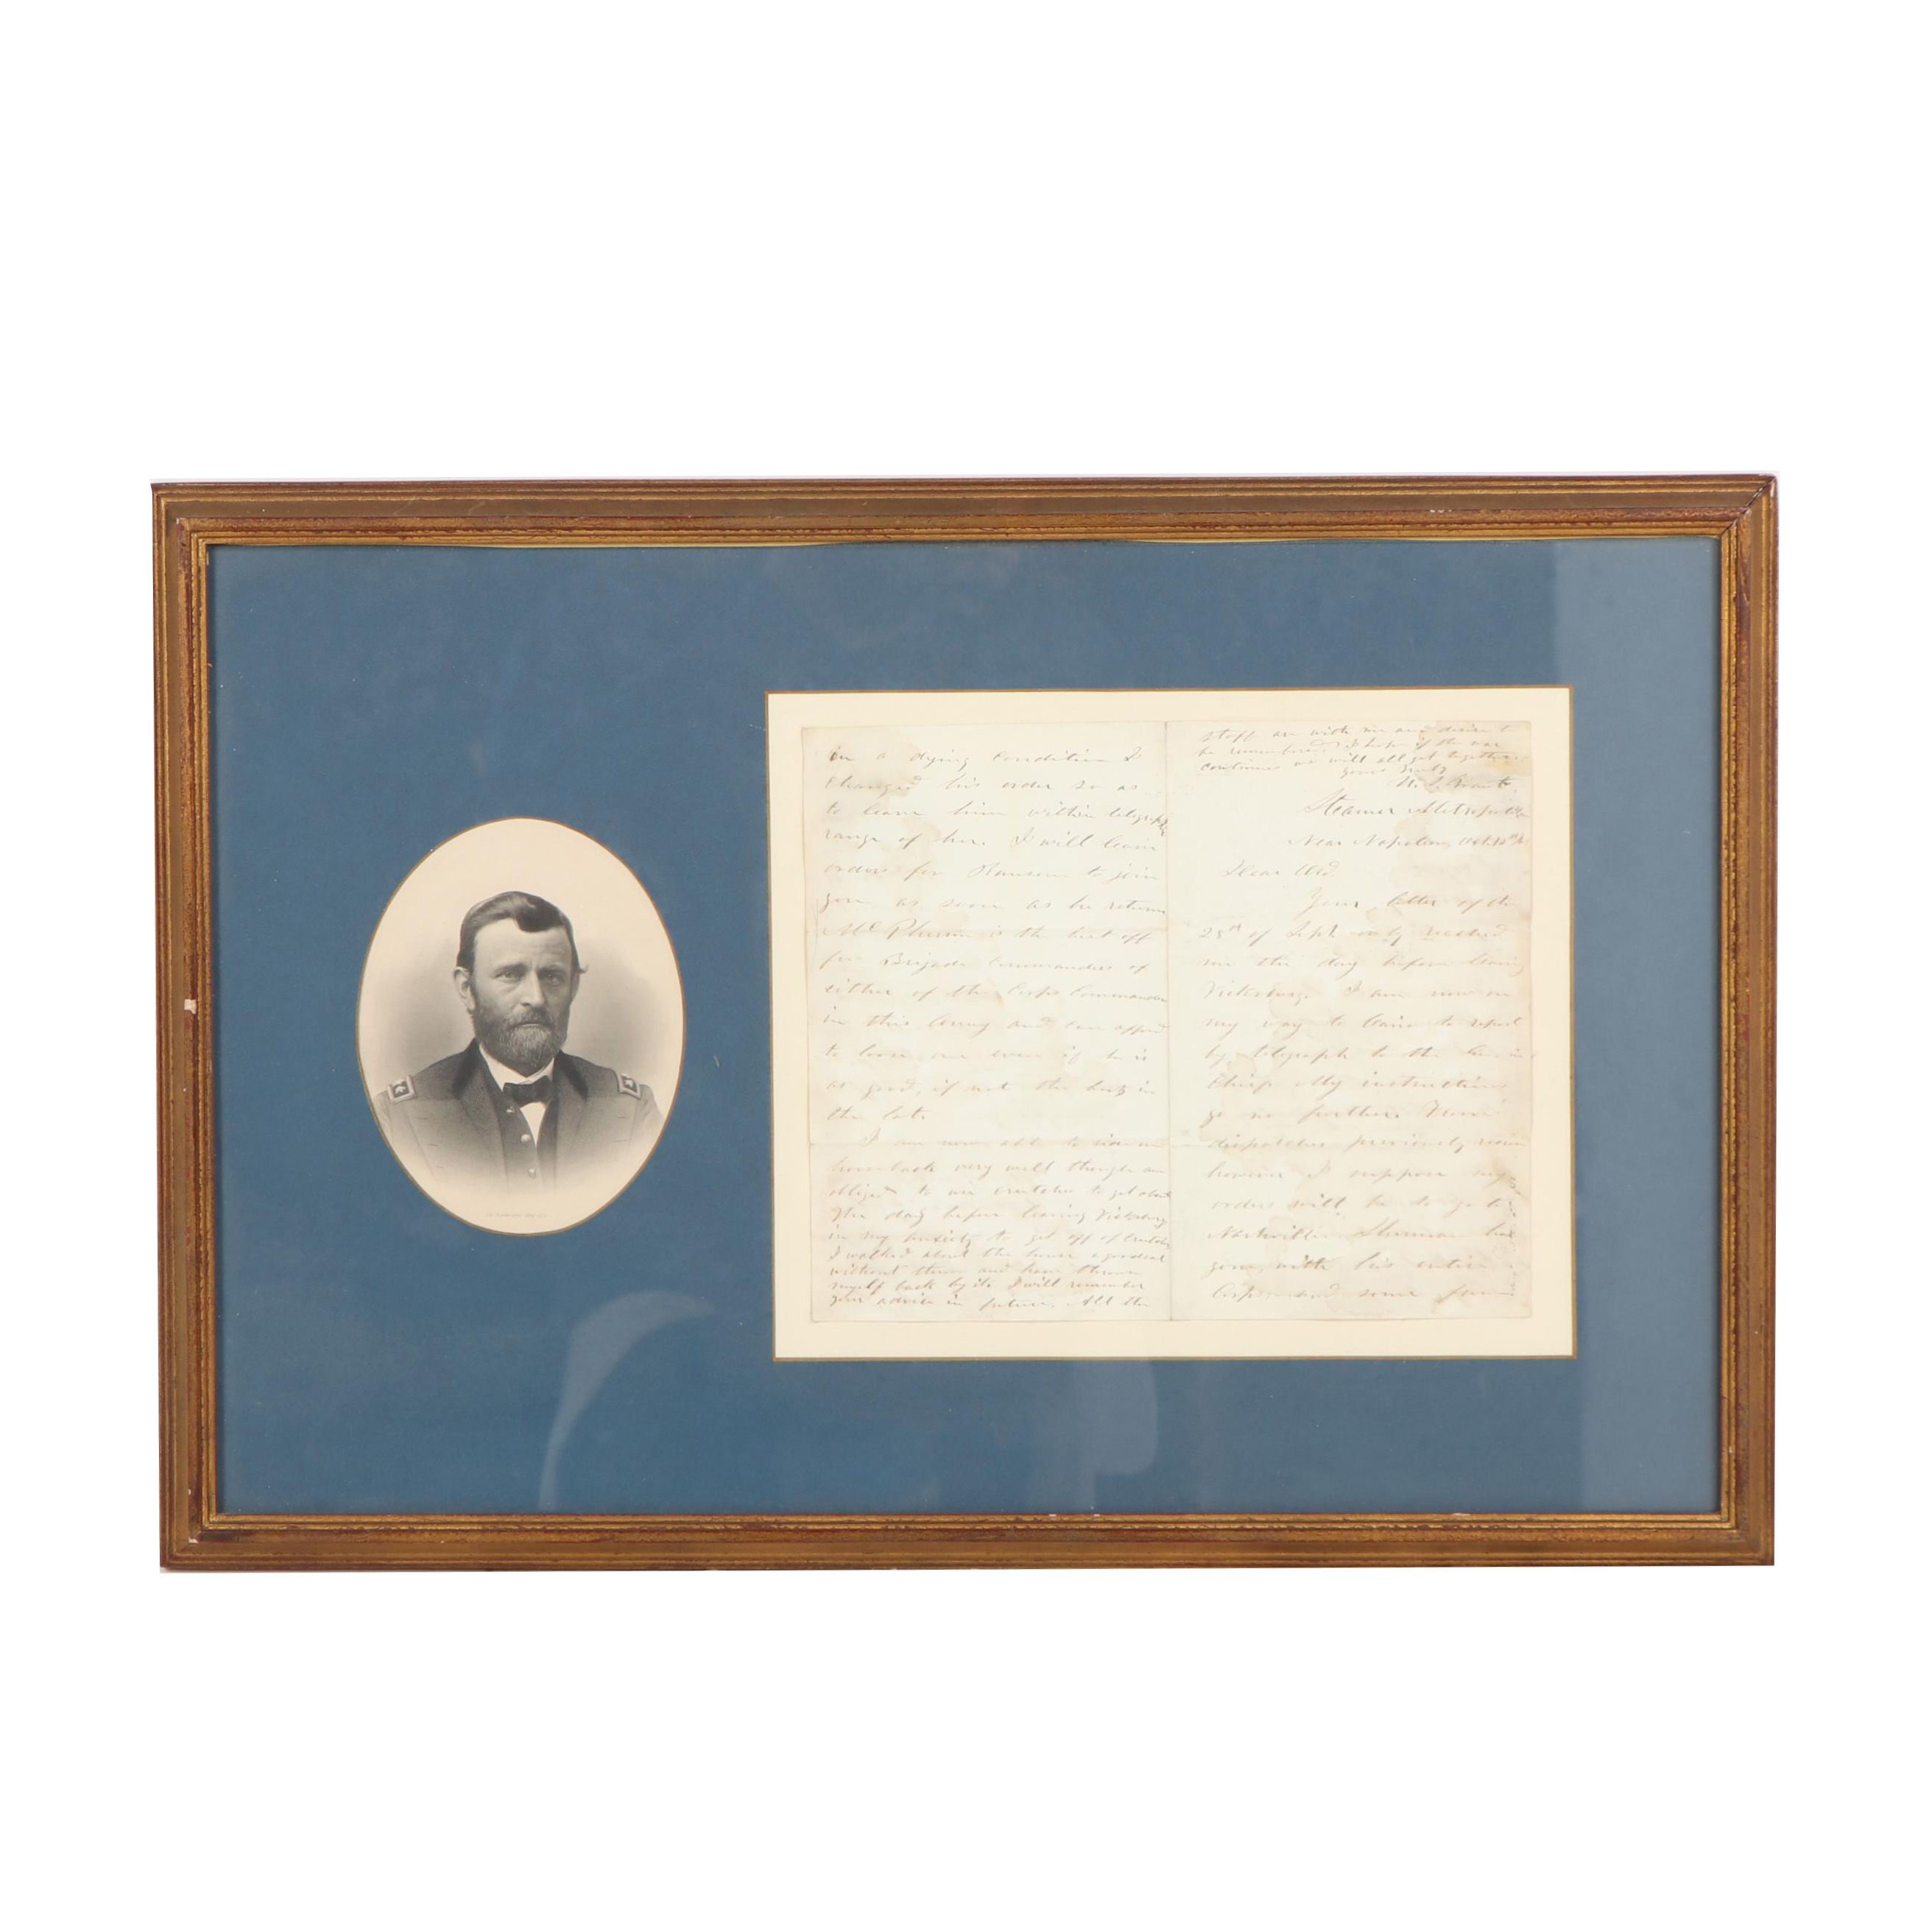 in a dying condition I
changed his order so as
to leave him within telegraph
range of her. I will leave
orders for Ransom to join
you as soon as he returns
McPherson is the best off
for Brigade Commanders of
either of the Corps Commanders
in this Army and can afford
to loose one even if he is
as good, if not the best in
the lot.
I am now able to ride on
horseback very well though am
obliged to use crutches to get about
The day before leaving Vicksburg
in my anxiety to get off of crutches
I walked about the house a good deal
without them and have thrown
myself back by it. I will remember
your advice in future. All the
staff are with me and desire to
be remembered. I hope if the war
continues we will all get together.
yours Truly
U. S. Grant
Steamer Metropolitan
Near Napoleon, Oct. 12th
Dear Ord.
Your letter of the
28th of Sept. only reached
me the day before leaving
Vicksburg. I am now on
my way to Cairo to report
by telegraph to the Gen. in
Chief. My instructions
go no further. From
dispatches previously
however I suppose my
orders will be to go to
Nashville. Sherman has
gone, with his entire
Corps and some from